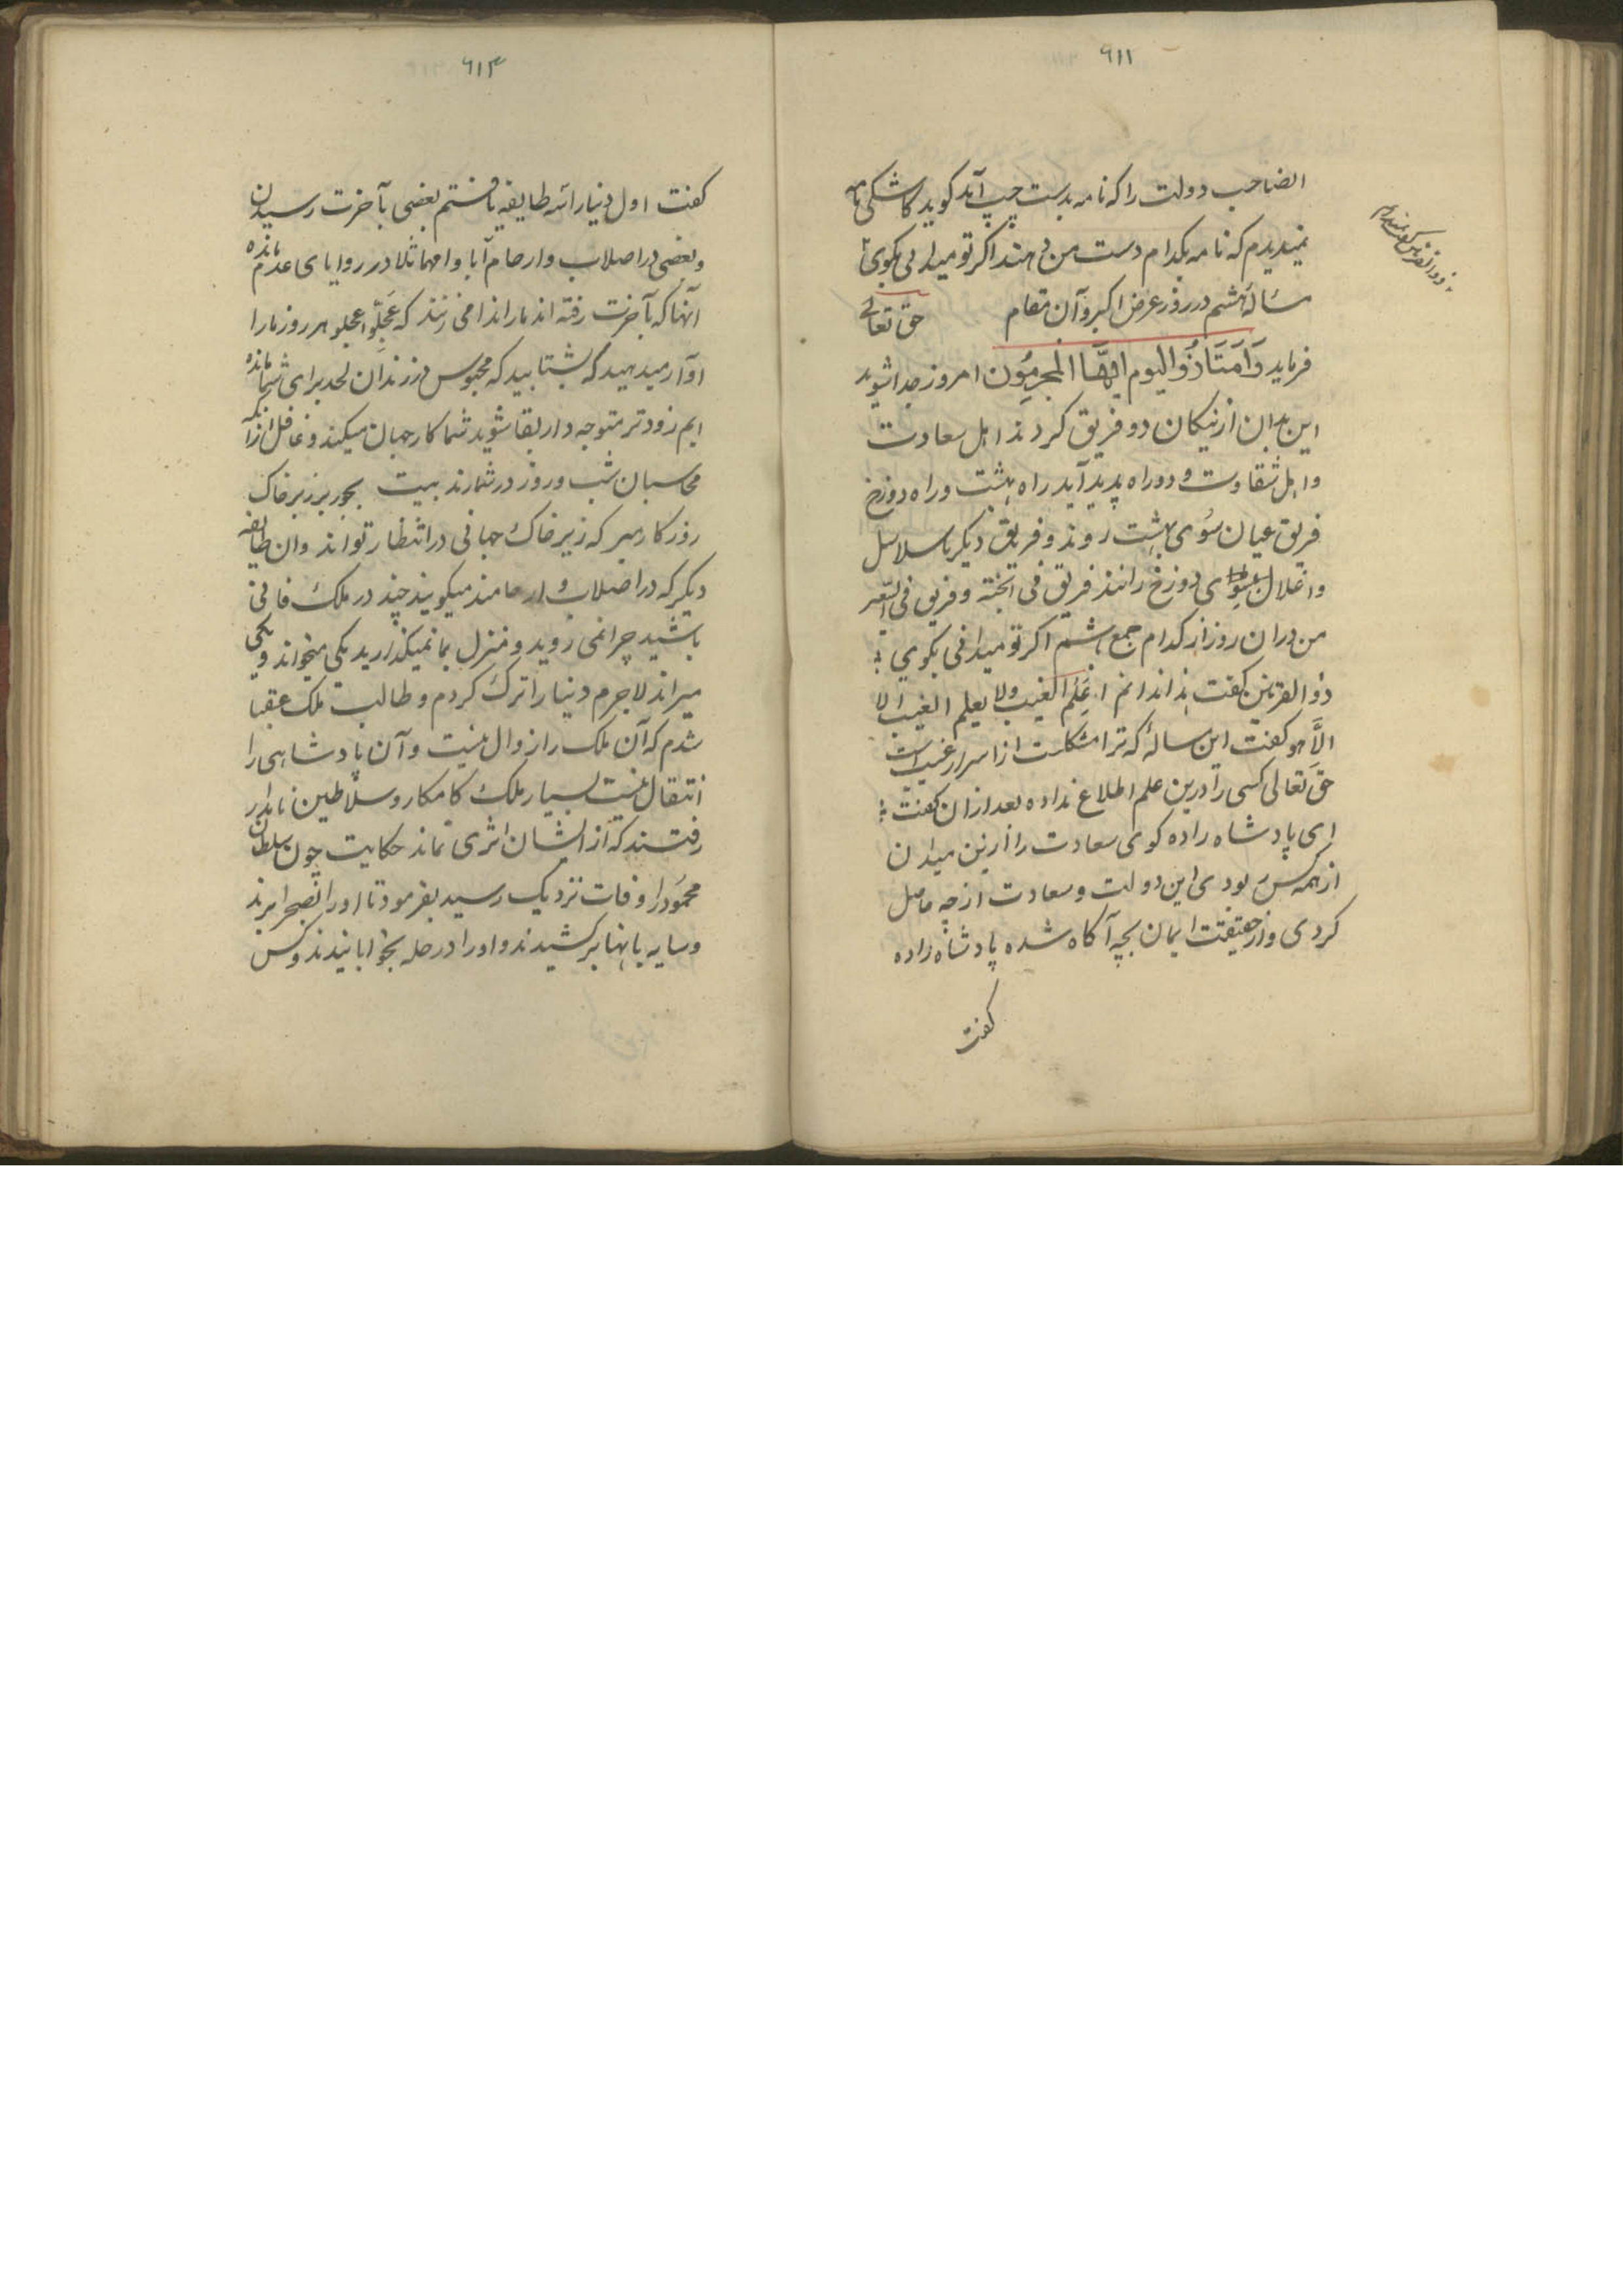 ۹۱۱
الصاحب دولت را که نامه بدست چپ آید کوید کاشکی نامه
نمیدیدم که نامه بکدام دست من دهند اکر تو میدانی بکوی
مسئالهٔ هشتم در روز عرض اکبر و آن مقام حق تعالی
فرماید وَامتَاذُ والیوم ایُّهَا المجرمُون امروز جدا شوید
این بدان از نیکان دو فریق کردند اهل سعادت
و اهل شقاوت و دو راه پدید آید راه بهشت و راه دوزخ
فریق عیان سُوی بهشت روند و فریق دیکر با سلاسل
و اغلال بسوی دوزخ رانند فریق فی الجنة و فریق فی السعیر
من دران روز از کدام جمع باشم اکر تو میدانی بکوی
ذو القرنین کفت ندانم الغیب ولا یعلم الغیب الا
الاَّ هو کفت این سالهٔ که ترا مشکلست از اسرار غیب است
حق تعالی کسی را درین علم اطلاع نداده بعد ازان کفت
ای پادشاه زاده کوی سعادت را ازین میدان
از همه کس بودی این دولت و سعادت از چه حاصل
کردی و از حقیقت ایمان بچه آکاه شده پادشاه زاده
کفت
۹۱۳
کفت اول دنیا را سه طایفه یافتم بعضی بآخرت رسیدن
و بعضی در اصلاب و ارحام آبا و امهات در زوایای عدم مانده
آنها که بآخرت رفته اند ما را ندا می زنند که عَجِّلُوا عجلو هر روز ما را
آواز میدهید که بشتابید که محبوس در زندان لحد برای شما مانده
ایم زودتر متوجه دار بقا شوید شما کار جهان میکنید و غافل ازانکه
محاسبان شب و روز در شمارند بیت بجور بر زبر خاک
روزکار مبر که زیر خاک جهانی در انتظار تواند وان طایفه
دیکر که در اصلاب و ارحامند میکویند چند در ملک فانی
باشید چرا نمی روید و منزل بما نمیکذارید یکی میخواند و یکی
میراند لاجرم دنیا را ترک کردم و طالب ملک عقبا
شدم که آن ملک را زوال نیست و آن پادشاهی را
انتقال نیست بسیار ملک کامکار و سلاطین نامدار
رفتند که از ایشان اثری نماند حکایت چون سلطان
محمود را وفات نزدیک رسید بفرمود تا او را بصحرا برند
و سایه بانها برکشیدند و او را در حله بخوابانیدند و کس